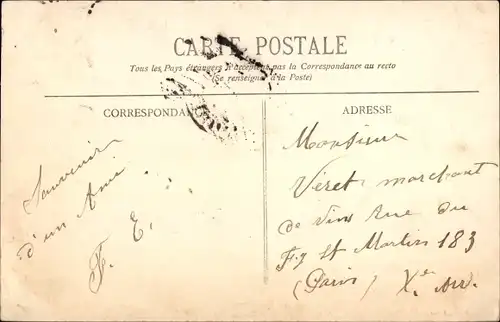 CARTE POSTALE
Tous les Pays étrangers n'acceptent pas la Correspondance au recto
(Se renseigner à la Poste)
CORRESPONDANCE
Souvenir
d'un Ami
F. E.
ADRESSE
Monsieur
Véret marchant
de Vins Rue du
Fg St Martin 183
(Paris) Xe Arr.